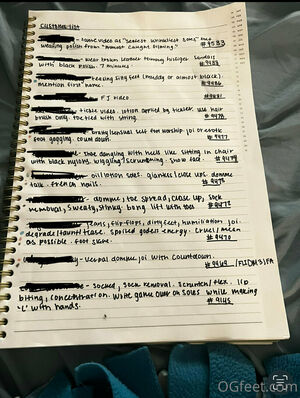 Customer list
- same video as "sexiest wrinkliest soles" but
wearing polish from "almost caught filming."
#9483
- wear brown leather Tommy hilfiger sandals
with black polish. 7 minutes
- teasing filthy feet (muddy or almost black).
mention first name. #9486
- FJ video
- tickle video. lotion applied by tickler. use hair
brush only. toe tied with string.
- bratty/sensual
foot gagging. countdown. #9477
- Shoe dangling with heels like sitting in chair
with black nylons, wiggling/scrunching. Show face.
- oil/lotion soles. giantess/close ups. domme
talk. french nails.
- domme, toe spread, close up, sock
removal, sweaty, stinky, lint with toes
jeans, flip-flops, dirty feet, humiliation, joi.
degrade/taunt/tease. Spoiled goddess energy. Cruel/mean
as possible. foot slave. #9470
- Verbal domme, joi with countdown.
- Socked, sock removal. scrunch/flex. lip
biting, concentration. write game over on soles while making
"L" with hands. #9145
OGfeet.com